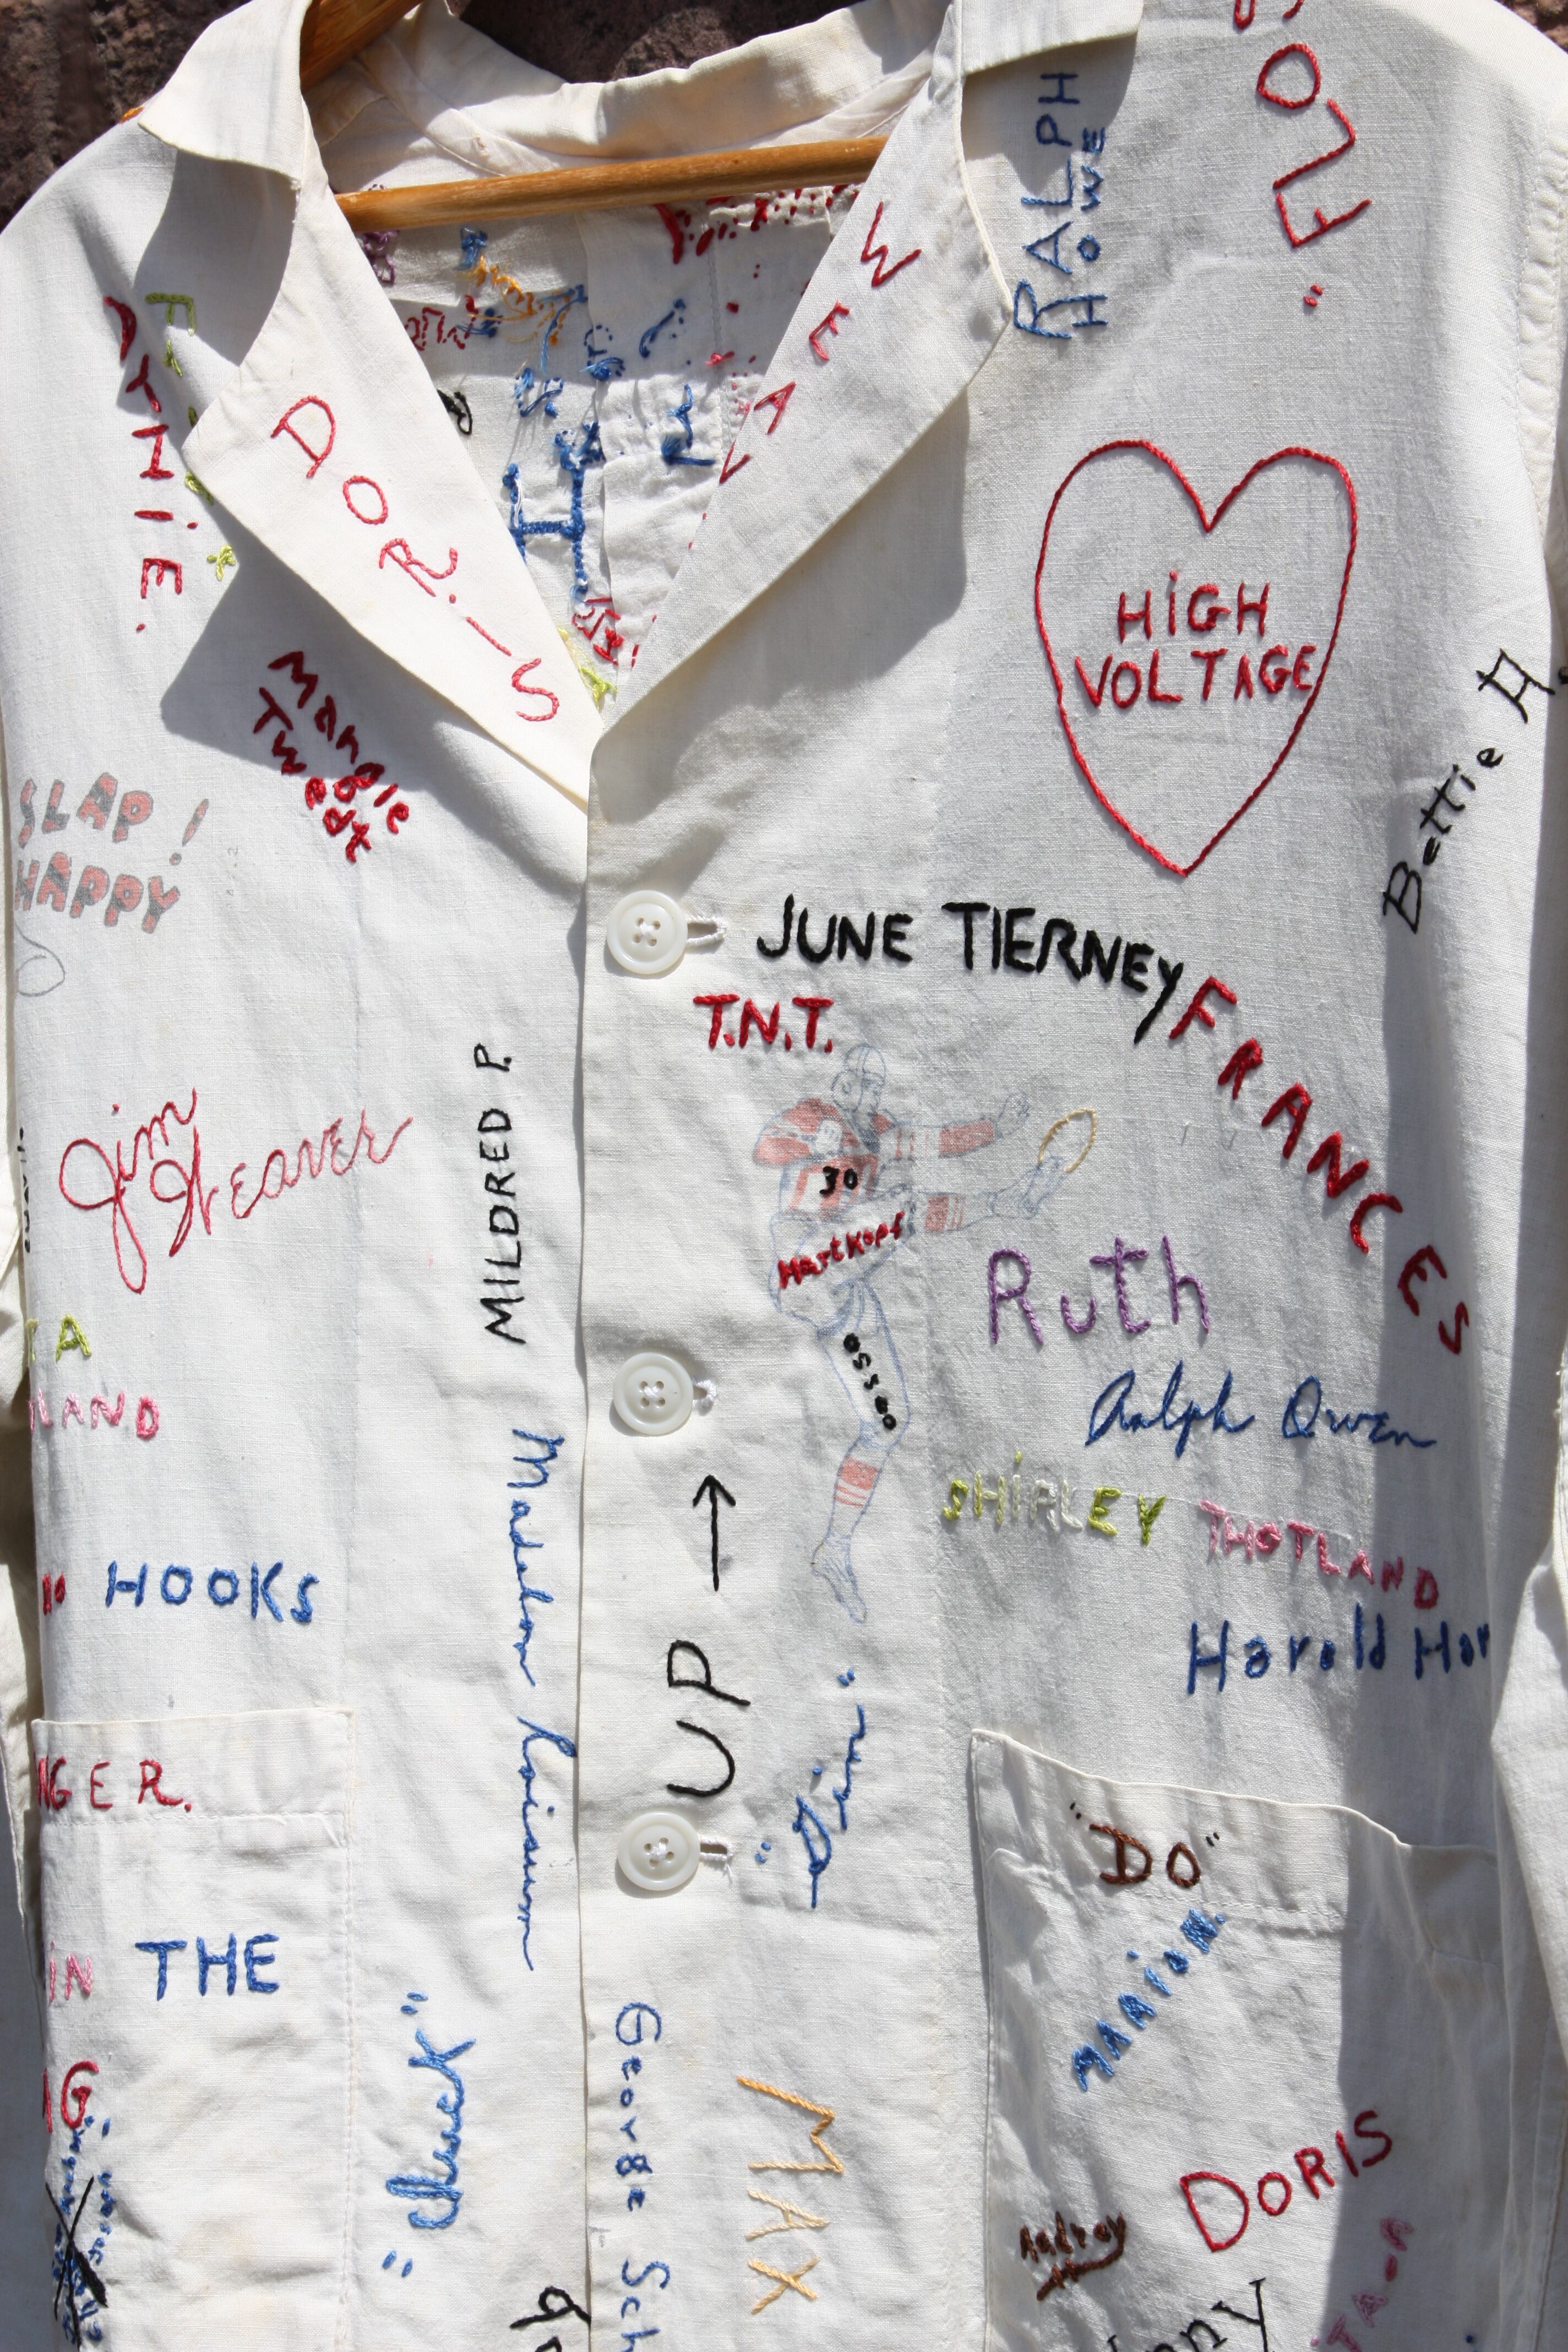 DORIS
WEAV
RALPH
HOWE
LOVE"
HIGH
VOLTAGE
Bettie H.
SLAP!
HAPPY
JUNE TIERNEY
T.N.T.
FRANCES
30
Hartkopf
Osseo
MILDRED P.
Jim
Weaver
Ruth
Ralph Owen
SHIRLEY THOTLAND
Harold Har
TA
LAND
HOOKS
UP →
"Jim"
NGER.
IN THE
NG
"Chuck"
George Sch
MAX
"DO"
MARION.
DORIS
Audrey
nny